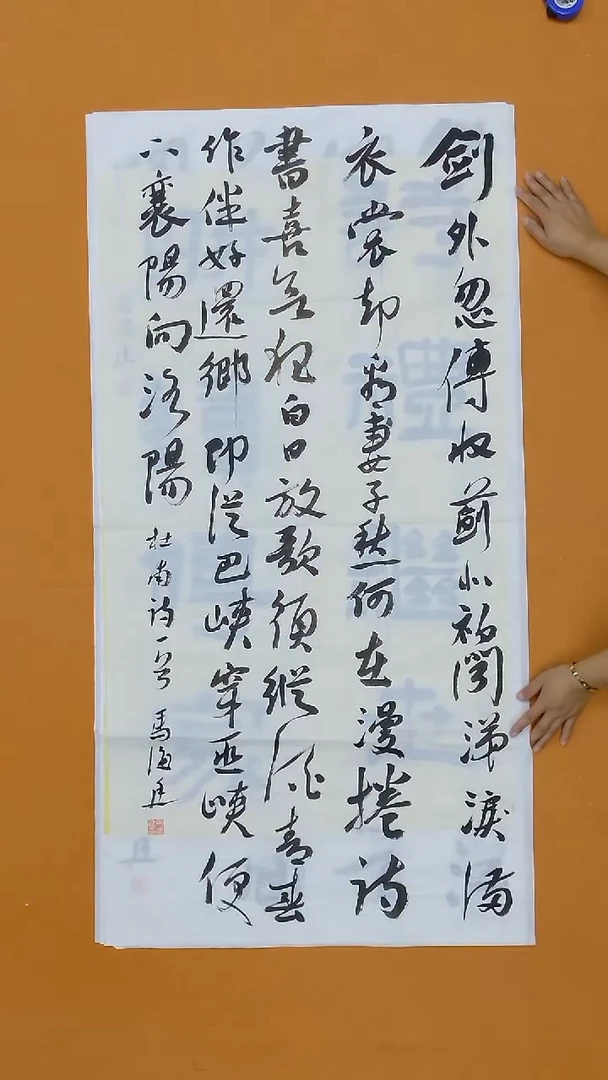 劍外忽傳收薊北初聞涕淚滿
衣裳却看妻子愁何在漫捲詩
書喜欲狂白日放歌須縱酒青春
作伴好還鄉即從巴峽穿巫峽便
下襄陽向洛陽 杜甫詩一首 馬海廷